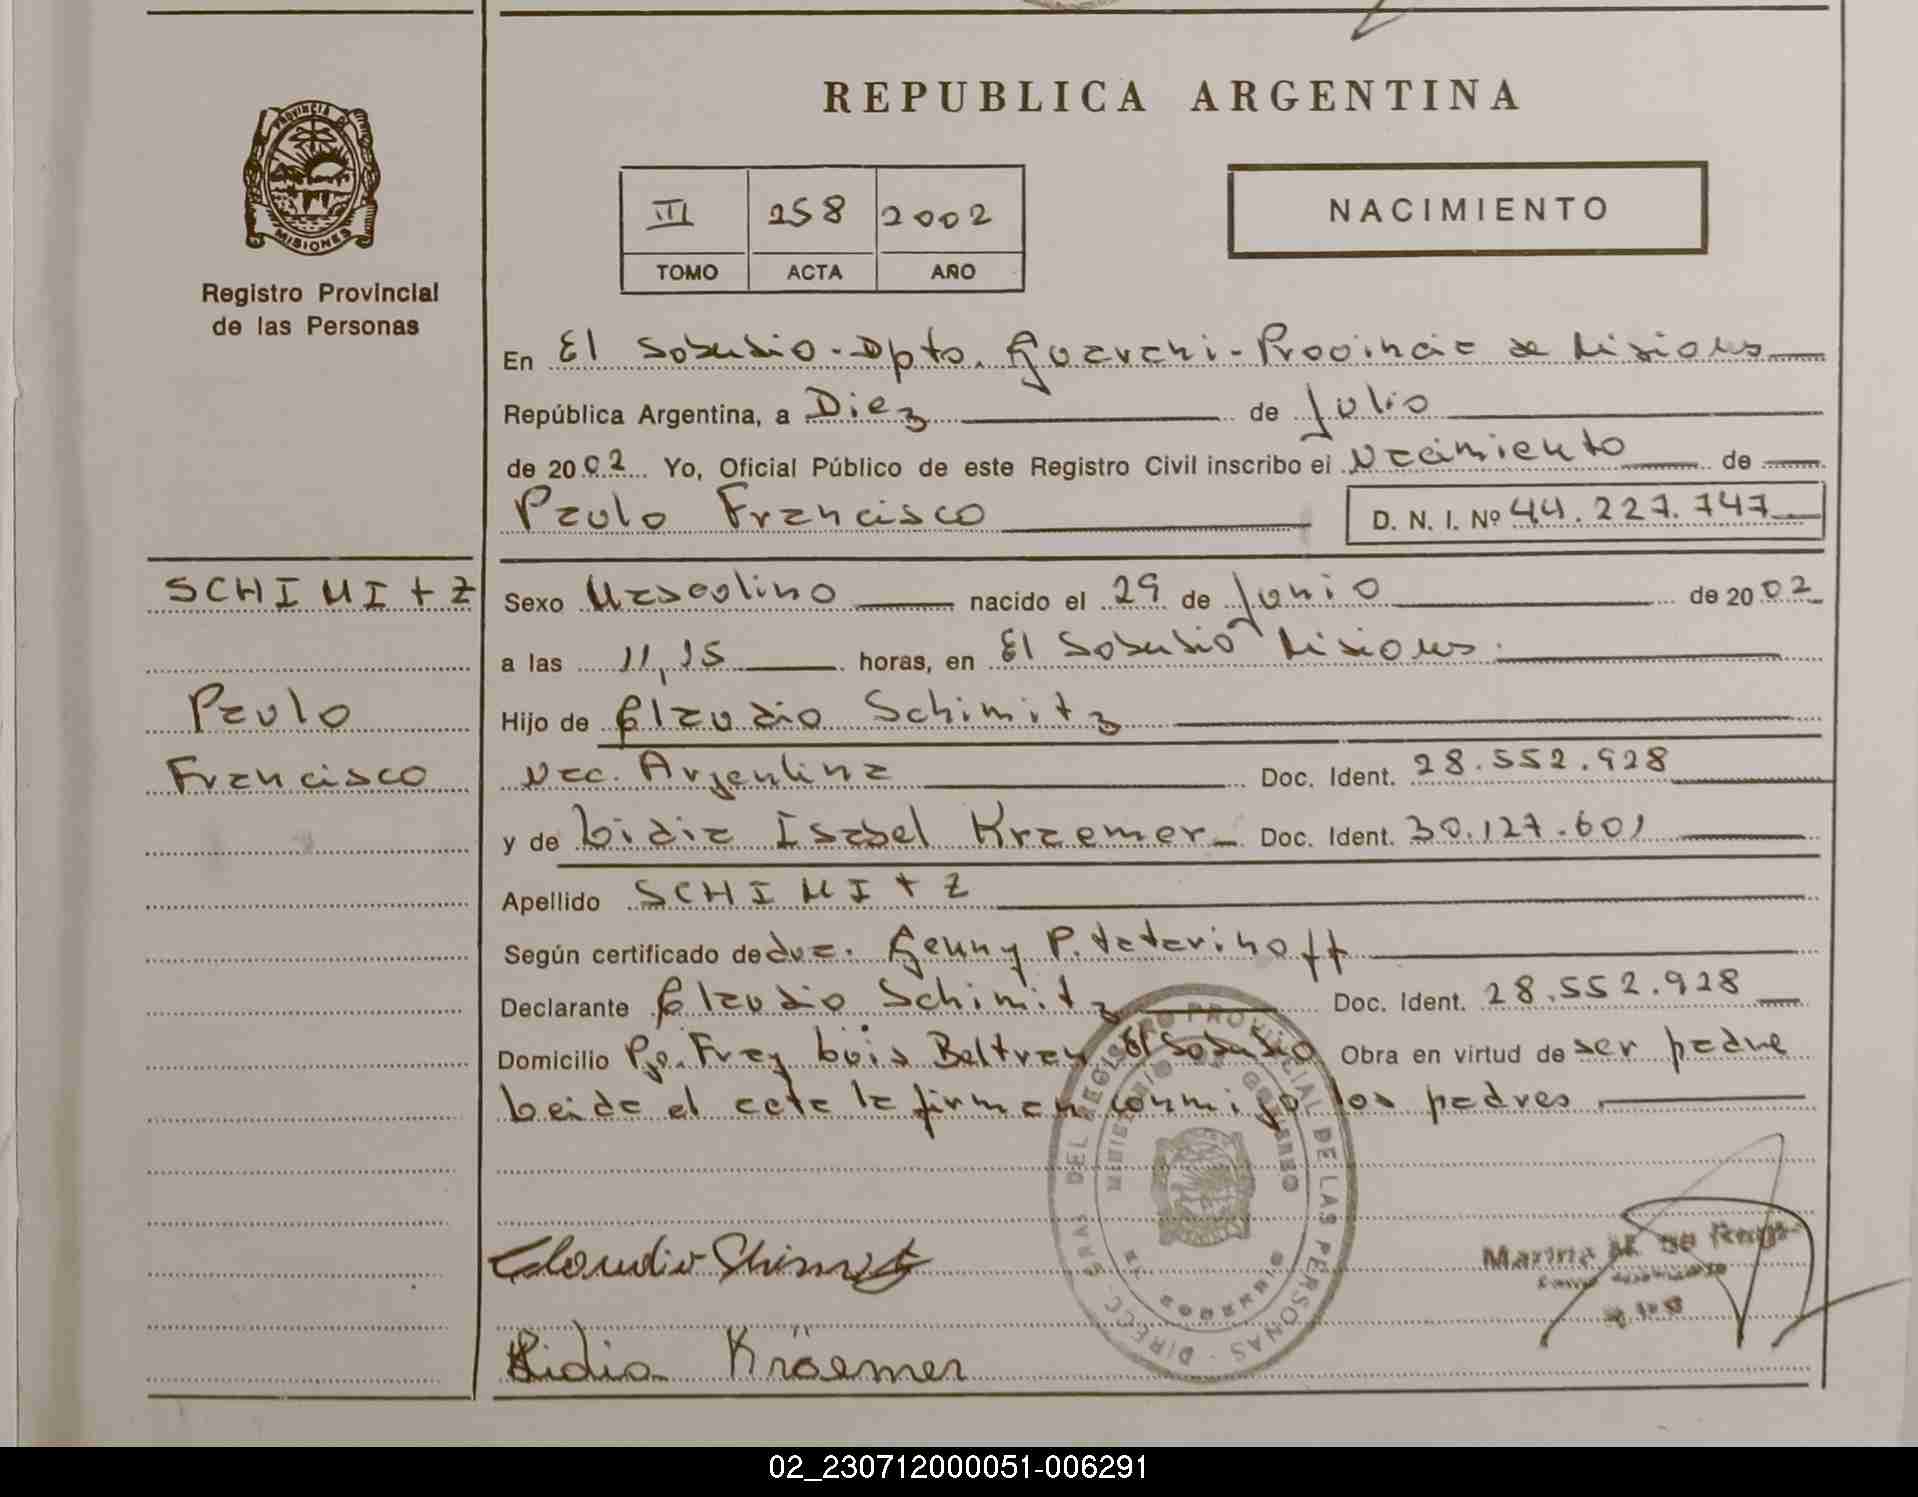 REPUBLICA ARGENTINA
PROVINCIA DE
MISIONES
Registro Provincial
de las Personas
III 258 2002
TOMO ACTA AÑO
NACIMIENTO
En El Soberbio - Dpto. Guarani - Provincia de Misiones
República Argentina, a Diez de Julio
de 2002 Yo, Oficial Público de este Registro Civil inscribo el Nacimiento de
Paulo Francisco D. N. I. Nº 44.227.747
SCHIMITZ
Paulo
Francisco
Sexo Masculino nacido el 29 de Junio de 2002
a las 11,15 horas, en El Soberbio Misiones.
Hijo de Claudio Schimitz
Nac. Argentina Doc. Ident. 28.552.928
y de Lidia Isabel Kraemer Doc. Ident. 30.127.601
Apellido SCHIMITZ
Según certificado de dra. Genny P. Tatarinoff
Declarante Claudio Schimitz Doc. Ident. 28.552.928
Domicilio Pje. Fray Luis Beltran El Soberbio Obra en virtud de ser padre
Leida el acta la firman conmigo los padres
DIRECC. GRAL. DEL REGISTRO PROVINCIAL DE LAS PERSONAS
MINISTERIO DE GOBIERNO
Claudio Shimitz
Marina
Lidia Kräemer
02_230712000051-006291